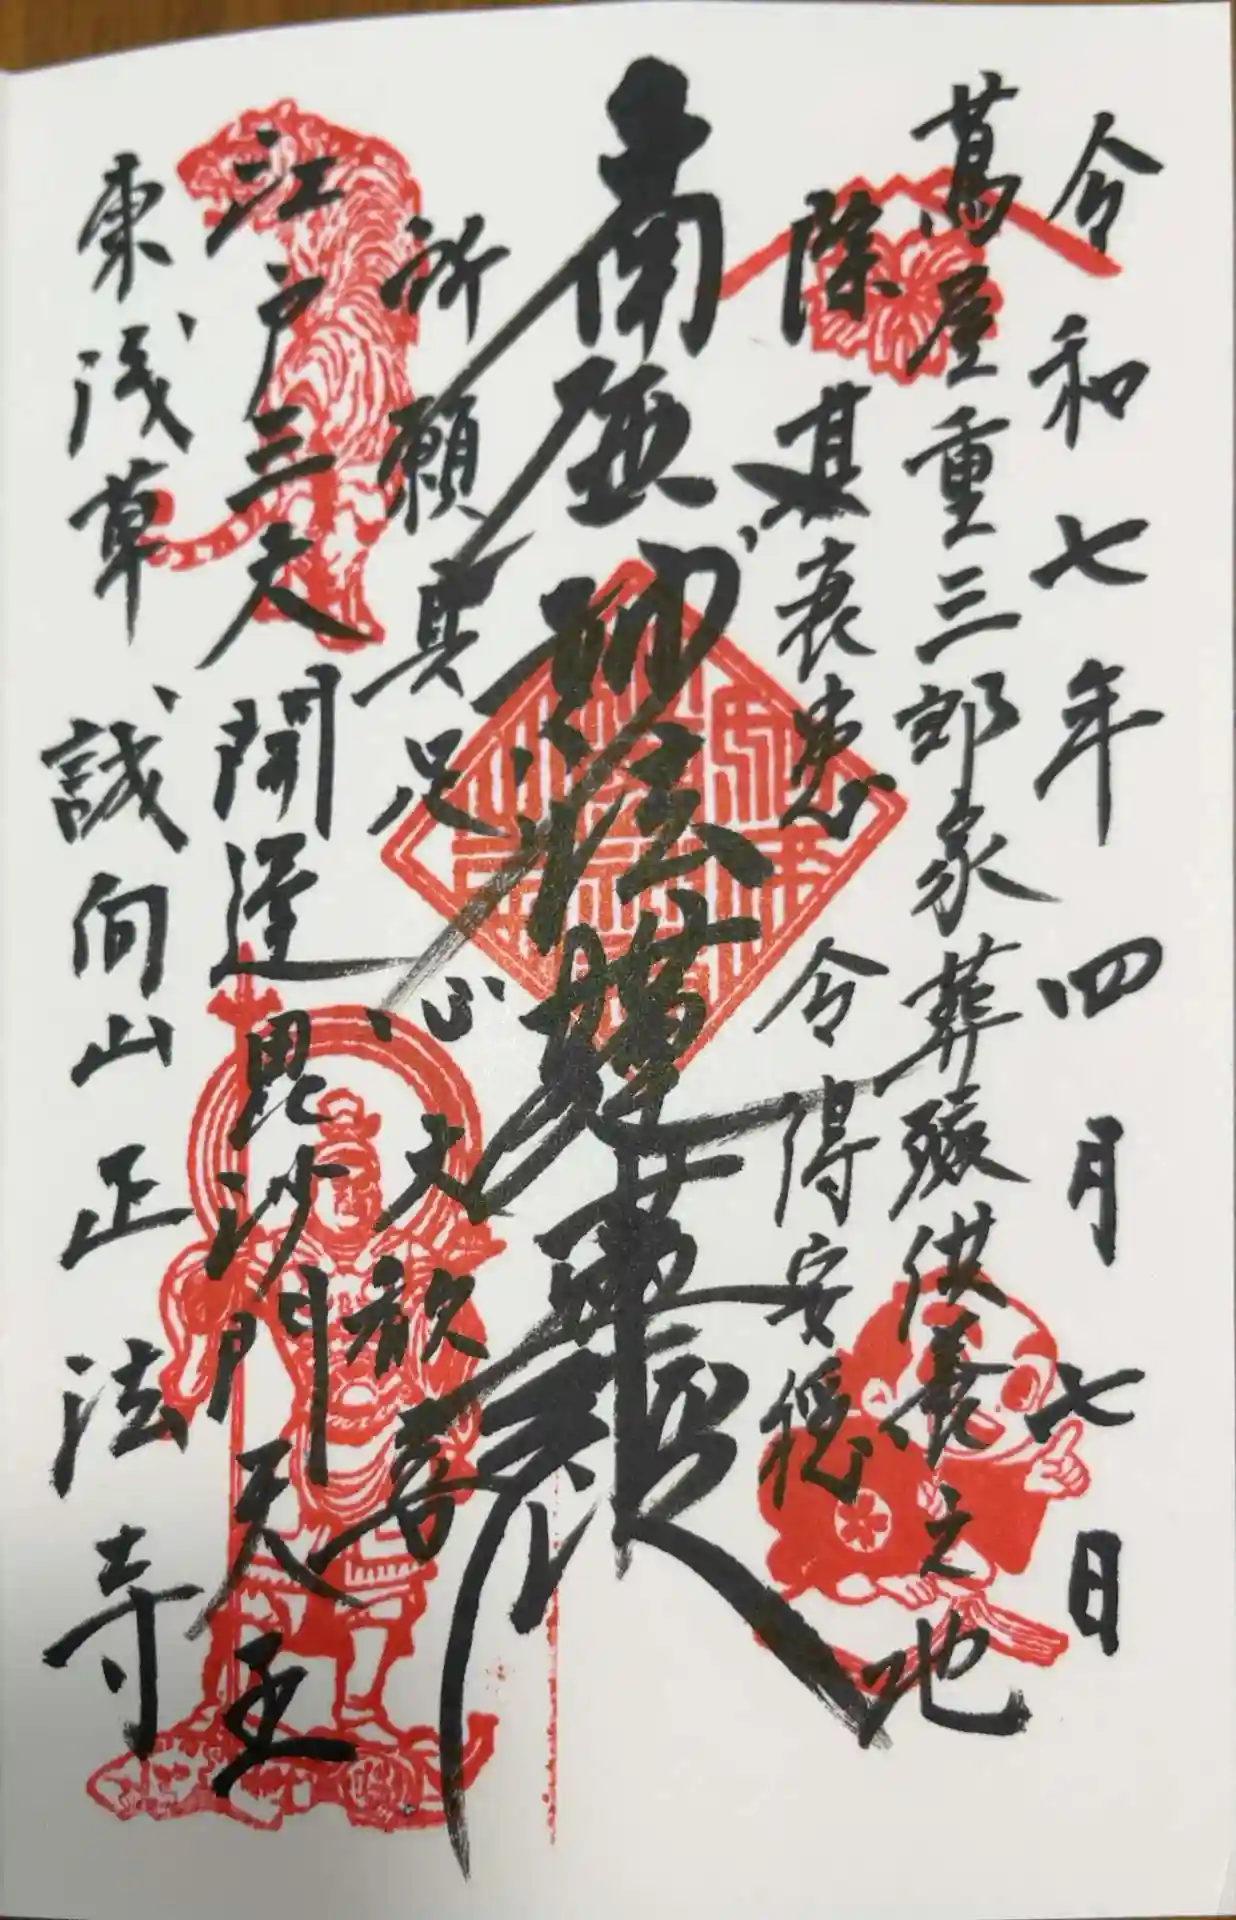 令和七年四月七日
蔦屋重三郎家葬殯供養之地
除其衰患 令得安穏
南無妙法蓮華経
所願具足 心大歓喜
江戸三大 開運毘沙門天王
東浅草 誠向山 正法寺